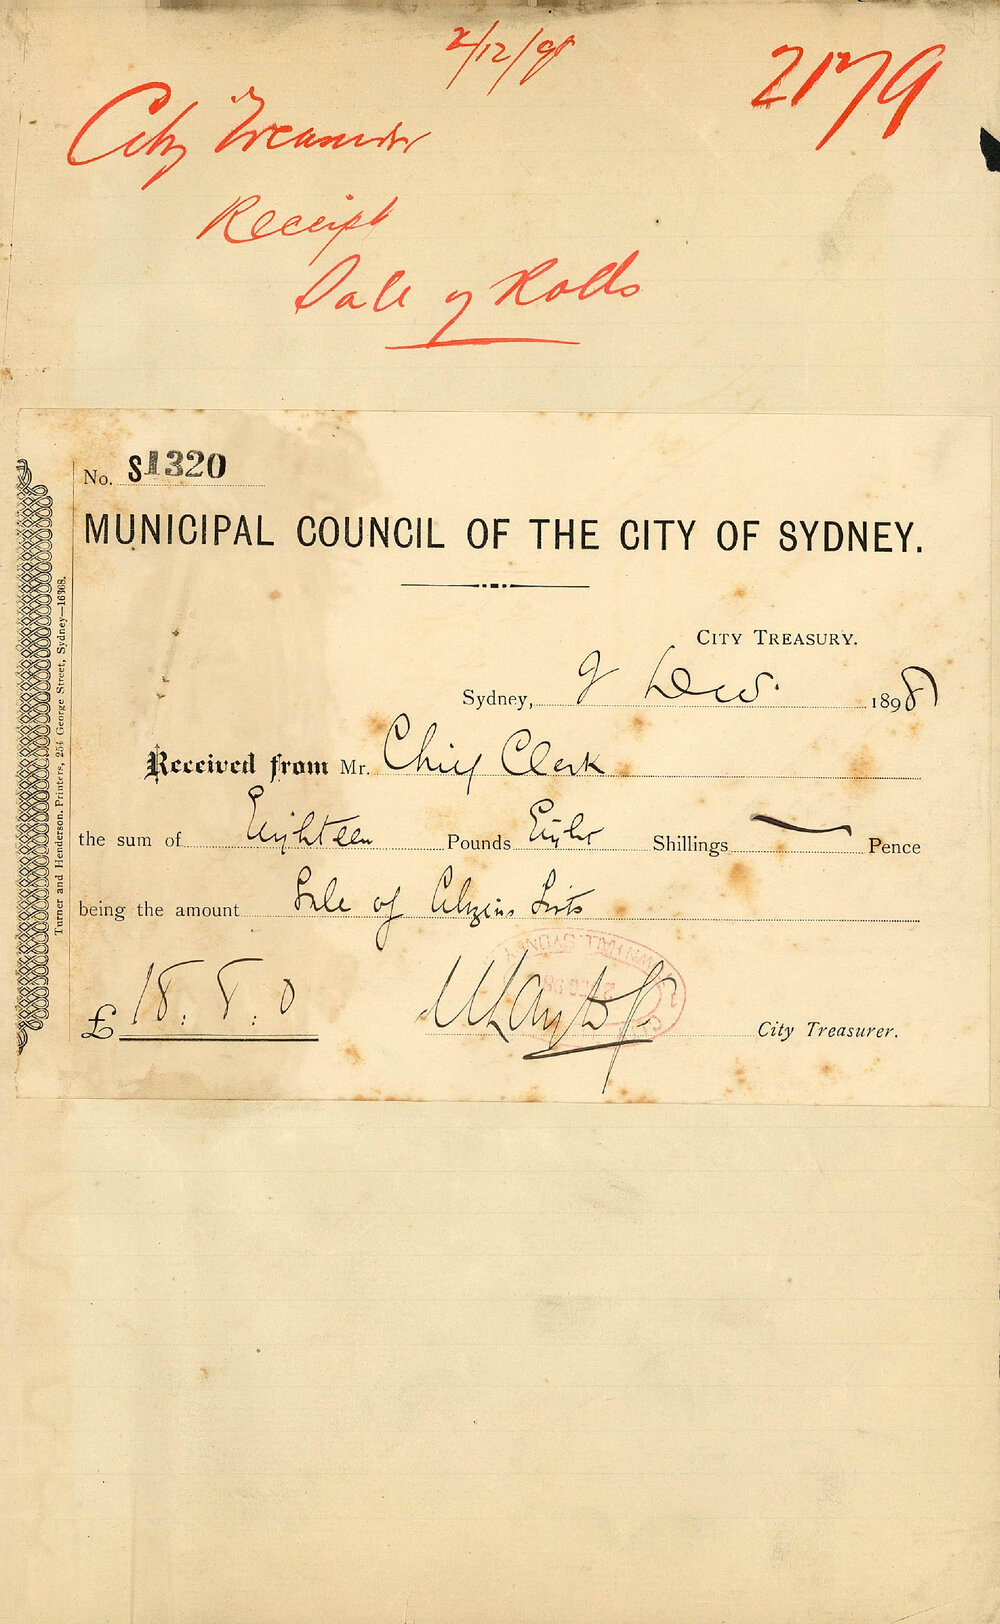 2/12/98
2179
City Treasurer
Receipt
Sale of Rolls
No. S1320
MUNICIPAL COUNCIL OF THE CITY OF SYDNEY.
CITY TREASURY.
Sydney, 2 Decr. 1898
Received from Mr. Chief Clerk
the sum of Eighteen Pounds Eight Shillings — Pence
being the amount Sale of Citizens Lists
£ 18. 8. 0
City Treasurer.
Turner and Henderson. Printers, 254 George Street, Sydney—16368.
TOWN HALL SYDNEY